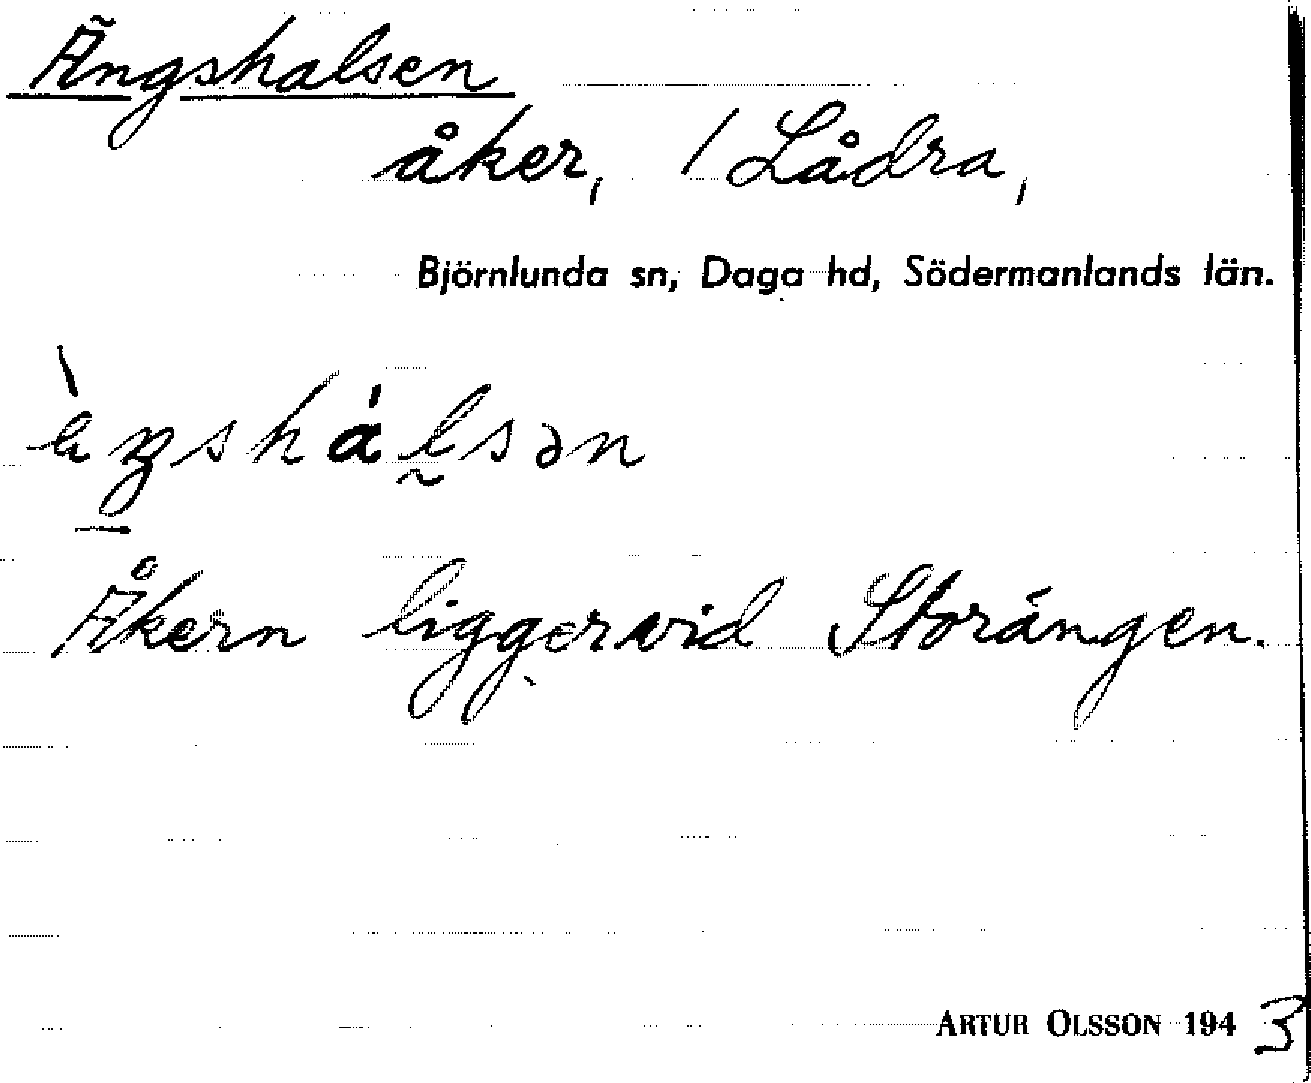 Ängshalsen
åker, / Lådra,
Björnlunda sn, Daga hd, Södermanlands län.
Åkern ligger vid Storängen.
ARTUR OLSSON 1943